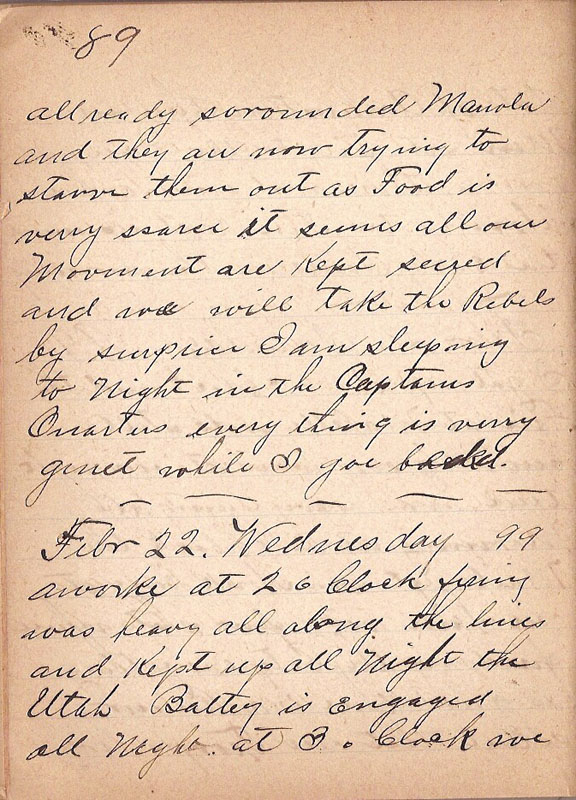 89
allready sorounded Manola
and they are now trying to
starve them out as Food is
verry scarce it seems all our
Movment are Kept secred
and we will take the Rebels
by surprise I am sleeping
to Night in the Captains
Quarters every thing is verry
quiet while I goe
Febr 22. Wednesday 99
aworke at 2 o Clock fiering
was heavy all along the lines
and Kept up all Night the
Utah Battey is engaged
all Night. at 3 o Clock we